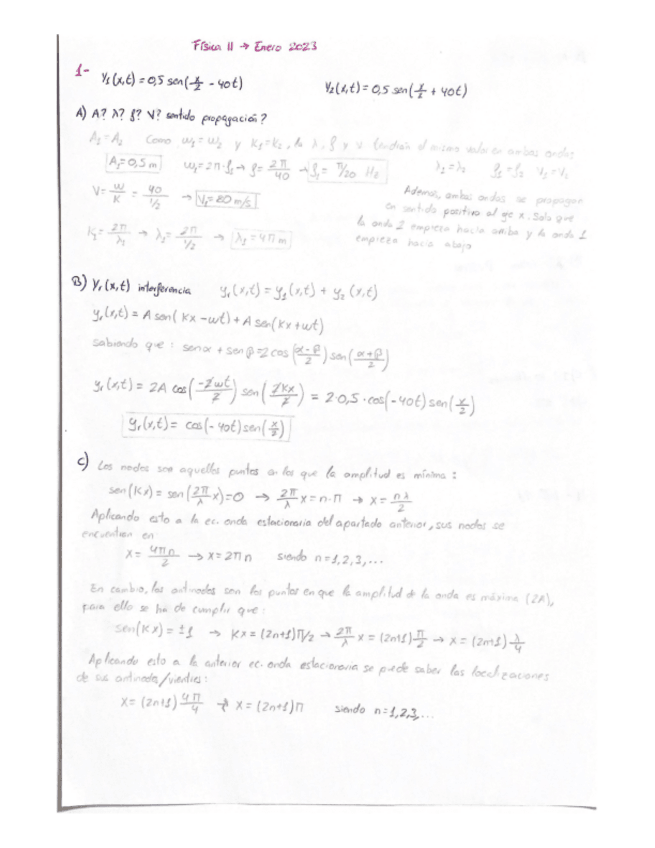 Física II → Enero 2023
1- y₁(x,t) = 0,5 sen(x/2 - 40t) y₂(x,t) = 0,5 sen(x/2 + 40t)
A) A? λ? f? V? sentido propagación?
A₁ = A₂ Como w₁ = w₂ y K₁ = K₂, la λ, f y v tendrán el mismo valor en ambas ondas
A₁ = 0,5 m w₁ = 2π·f₁ → f = 2π/40 → f₁ = π/20 Hz λ₁ = λ₂ f₁ = f₂ V₁ = V₂
V = w/K = 40/(1/2) → V₁ = 80 m/s
Además, ambas ondas se propagan
en sentido positivo al eje x. Solo que
la onda 2 empieza hacia arriba y la onda 1
empieza hacia abajo
K₁ = 2π/λ₁ → λ₁ = 2π/(1/2) → λ₁ = 4π m
B) yᵣ(x,t) interferencia yᵣ(x,t) = y₁(x,t) + y₂(x,t)
yᵣ(x,t) = A sen(Kx - wt) + A sen(Kx + wt)
sabiendo que: senα + senβ = 2 cos((α-β)/2) sen((α+β)/2)
yᵣ(x,t) = 2A cos(-2wt/2) sen(2Kx/2) = 2·0,5·cos(-40t) sen(x/2)
yᵣ(x,t) = cos(-40t) sen(x/2)
C) Los nodos son aquellos puntos en los que la amplitud es mínima:
sen(Kx) = sen(2π/λ x) = 0 → 2π/λ x = n·π → x = nλ/2
Aplicando esto a la ec. onda estacionaria del apartado anterior, sus nodos se
encuentran en
x = 4πn/2 → x = 2πn siendo n = 1,2,3,...
En cambio, los antinodos son los puntos en que la amplitud de la onda es máxima (2A),
para ello se ha de cumplir que:
sen(Kx) = ±1 → Kx = (2n+1)π/2 → 2π/λ x = (2n+1) π/2 → x = (2n+1) λ/4
Aplicando esto a la anterior ec. onda estacionaria se puede saber las localizaciones
de sus antinodos/vientres:
x = (2n+1) 4π/4 → x = (2n+1)π siendo n = 1,2,3,...